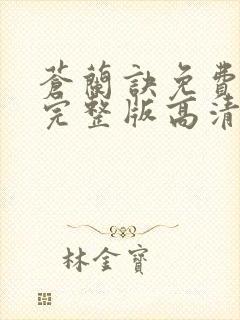 蒼蘭訣免費
完整版高清
林金寶